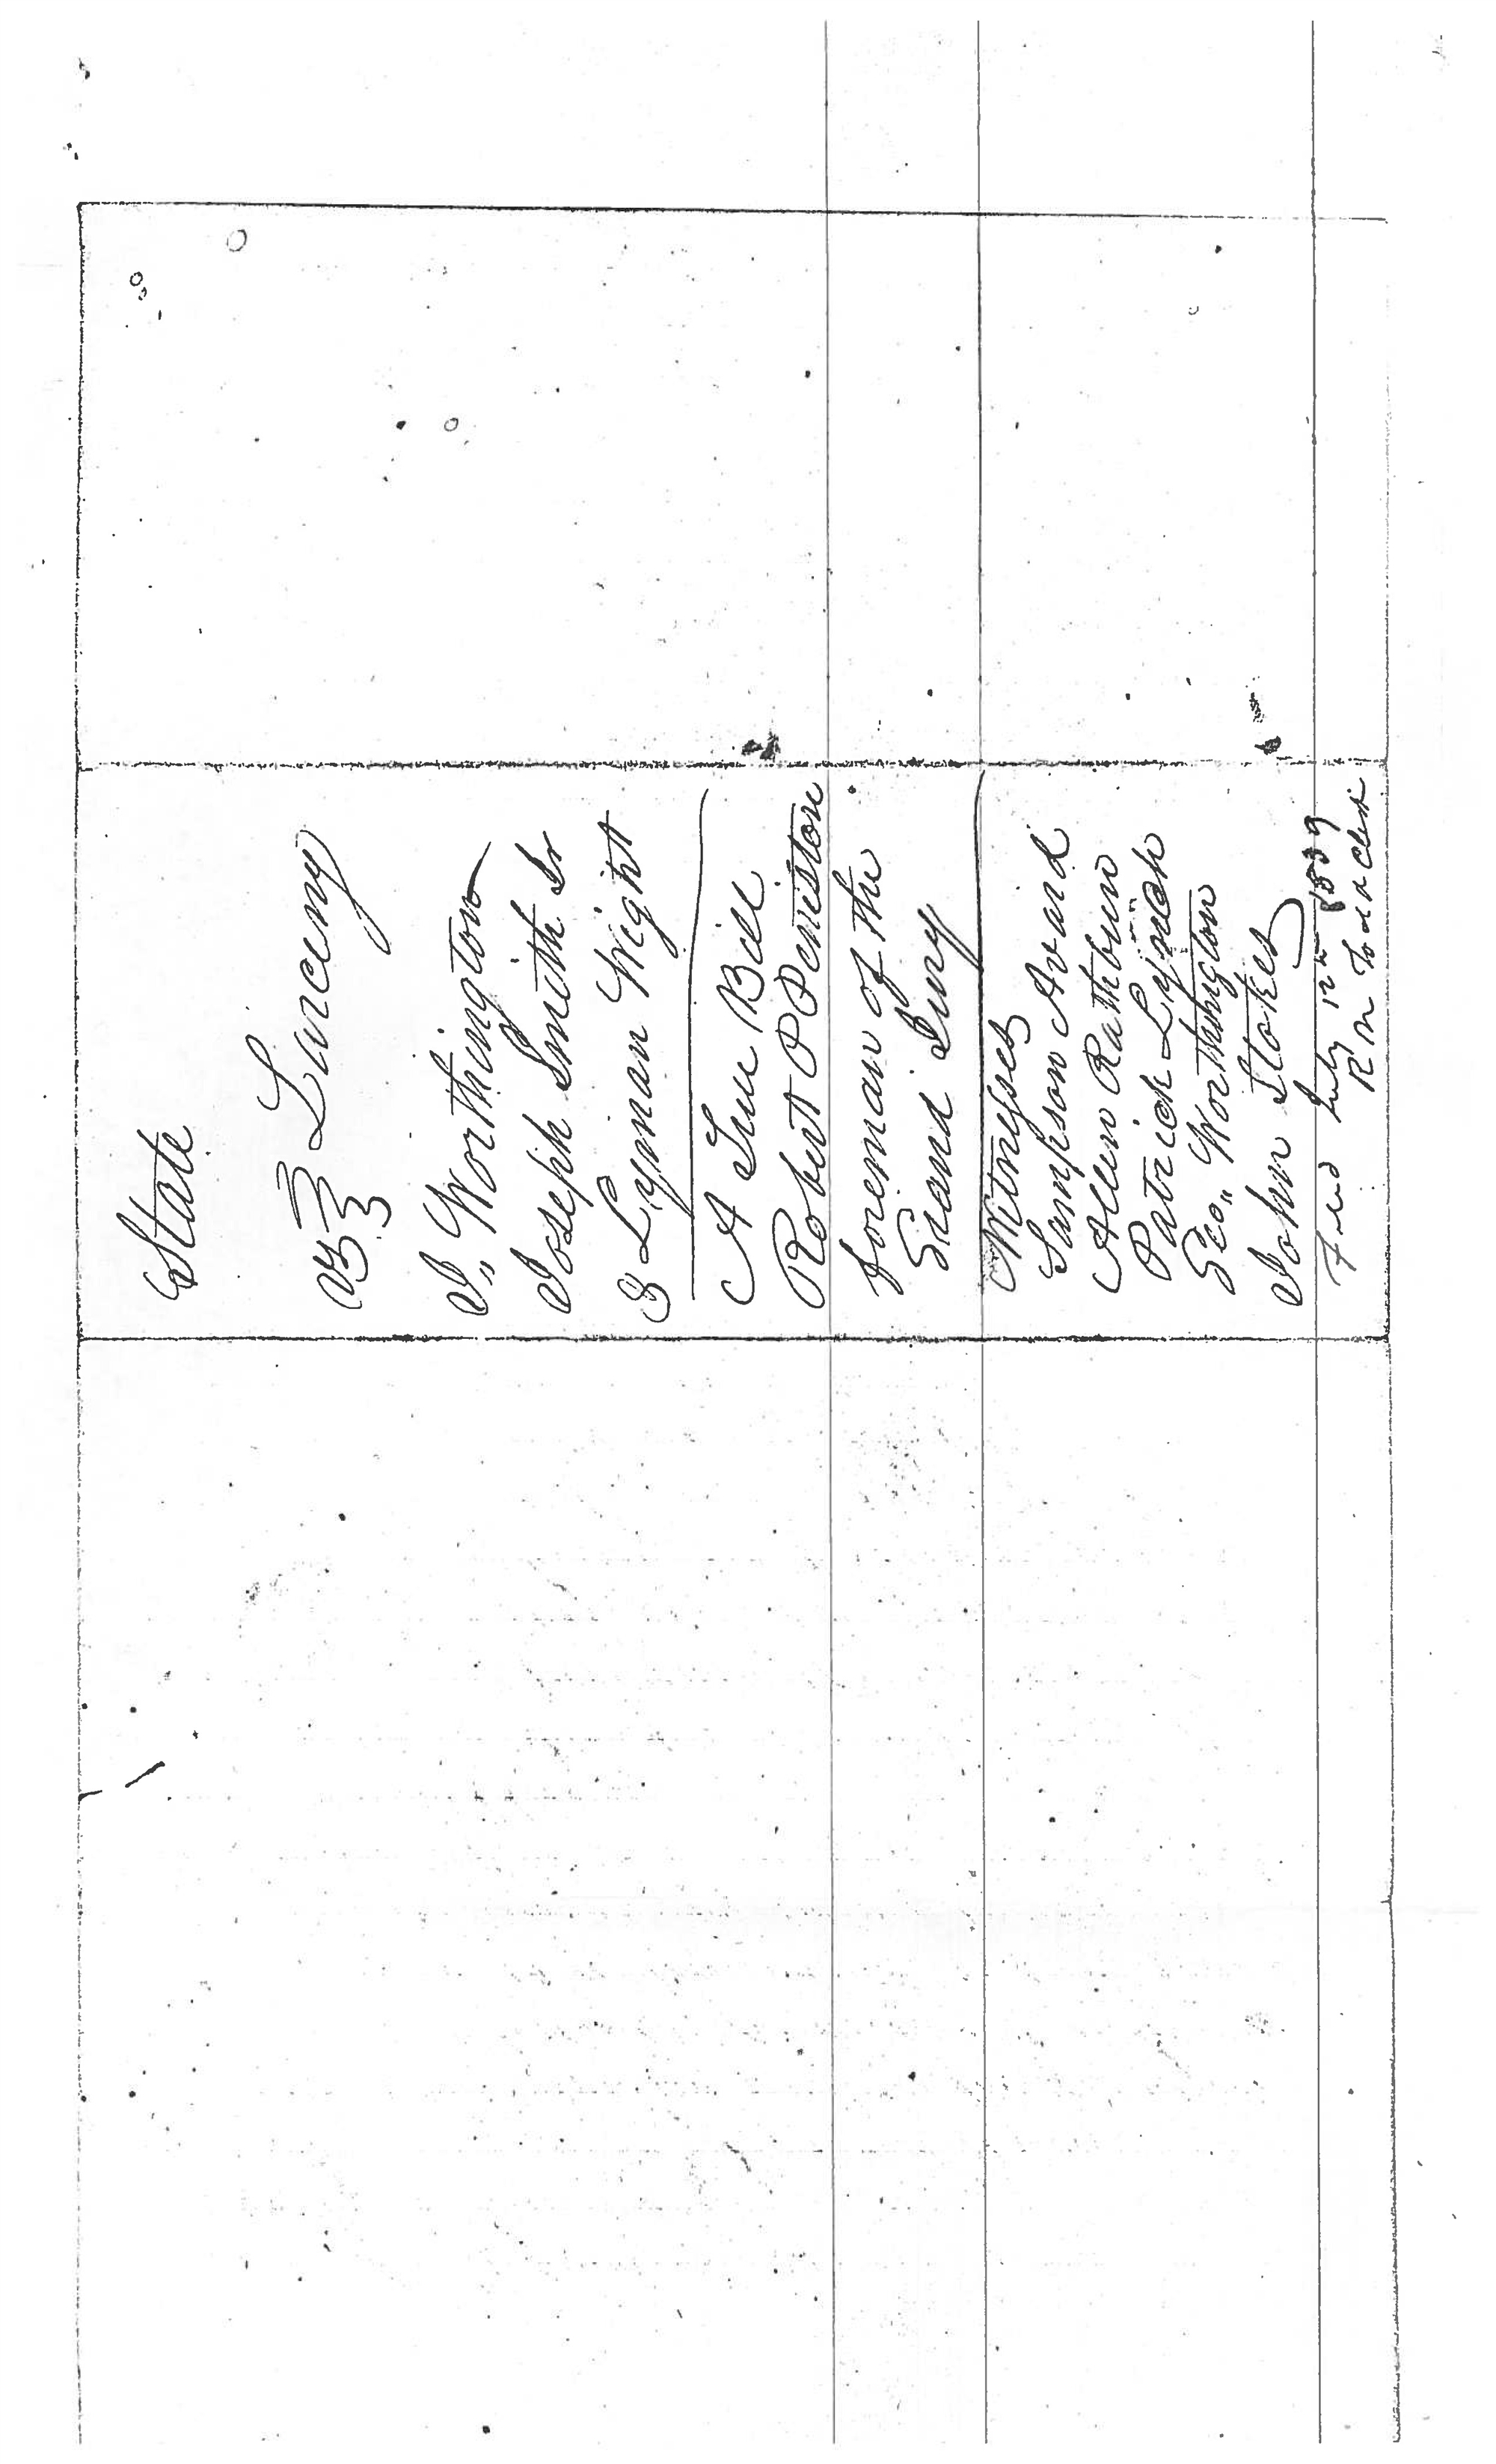 State
vs } Larceny
J,, Worthington
Joseph Smith Jr
& Lyman Wight
A True Bill
Robert P Peniston
foreman of the
Grand Jury
Witnesses
Sampson Avard
Allen Rathbun
Patrick Lynch
Geo,, Worthington
John Stokes
Filed July 1839
R N Todd Clerk